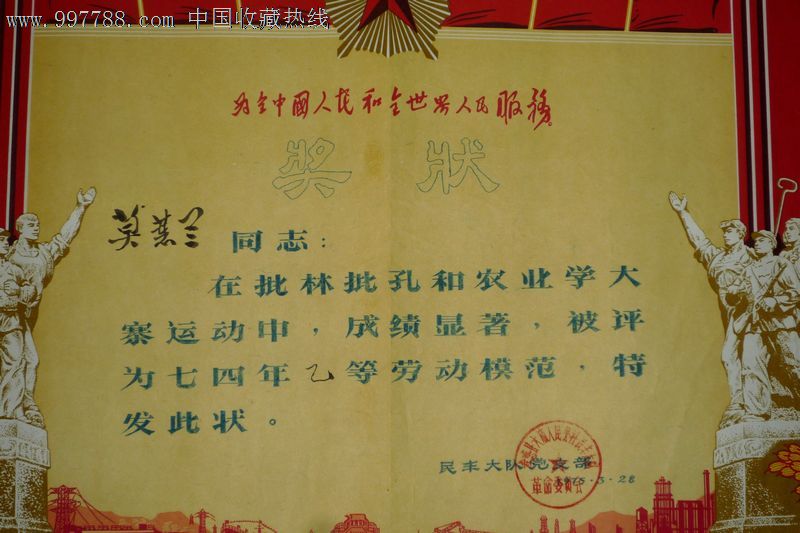 www.997788.com 中国收藏热线
为全中國人民和全世界人民服務。
奖狀
同志：
在批林批孔和农业学大
寨运动中，成绩显著，被评
为七四年乙等劳动模范，特
发此状。
民丰大队党支部
革命委员会
1975-3-28